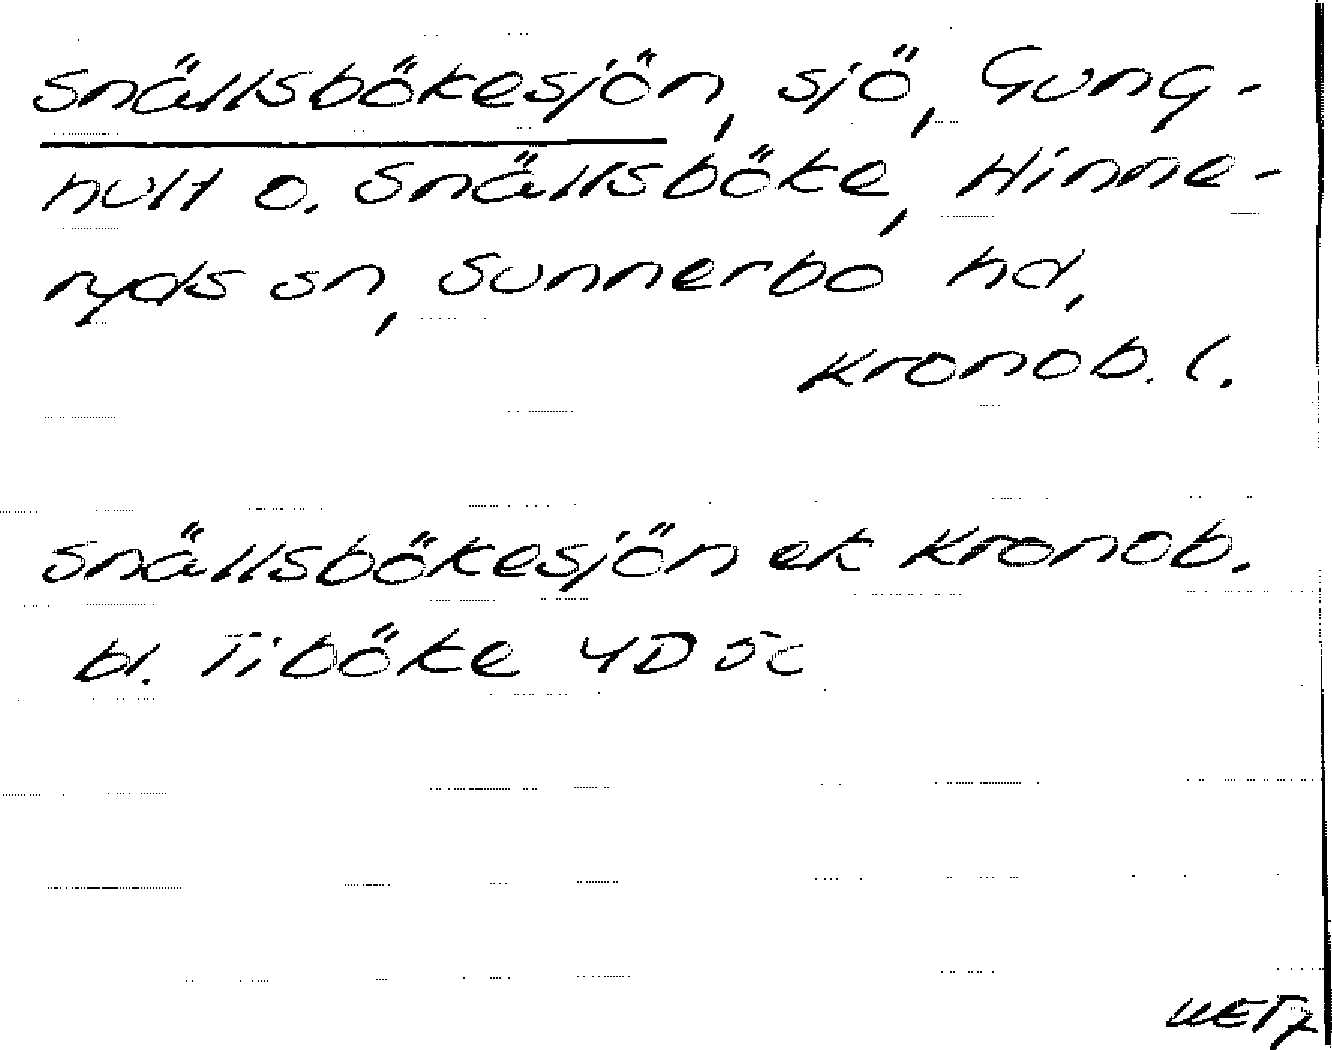 Snällsbökesjön, sjö, Gung-
hult o. Snällsböke, Hinne-
ryds sn, Sunnerbo hd,
Kronob. l.
Snällsbökesjön ek Kronob.
bl. Tiböke 4D 5c